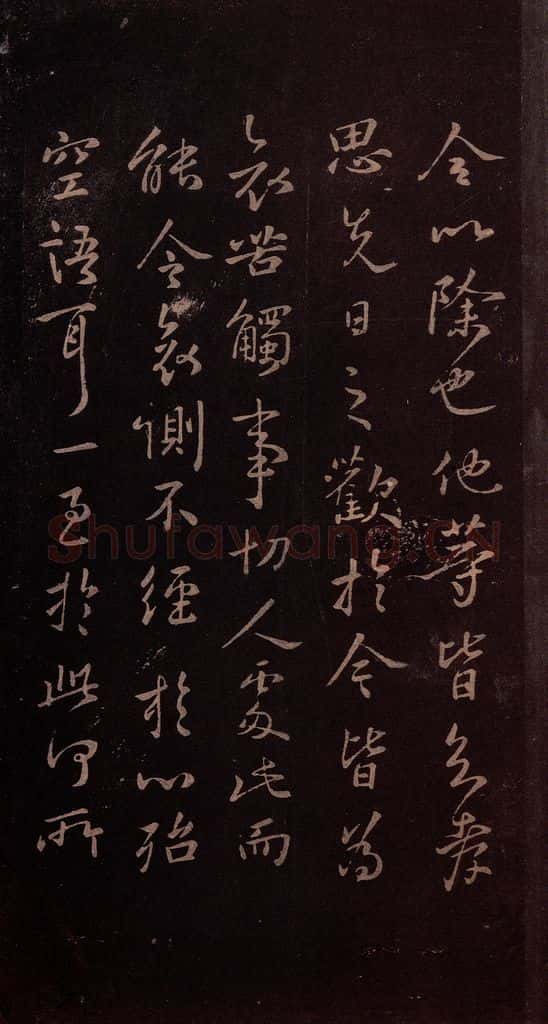 今以除也他等皆至孝
思先日之歡於今皆為
哀苦觸事切人處此而
能令哀惻不經於心殆
空語耳一至於此何所
Shufawang.CN